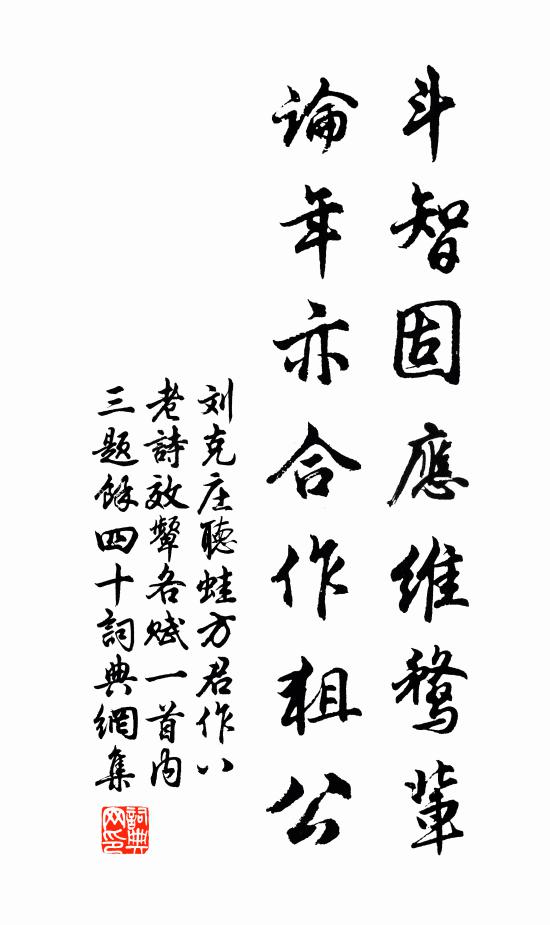 斗智固應維鶩輩
論年亦合作狙公
刘克庄聽蛙方君作八
老詩效顰各賦一首內
三題餘四十詞典網集
詞典
网印